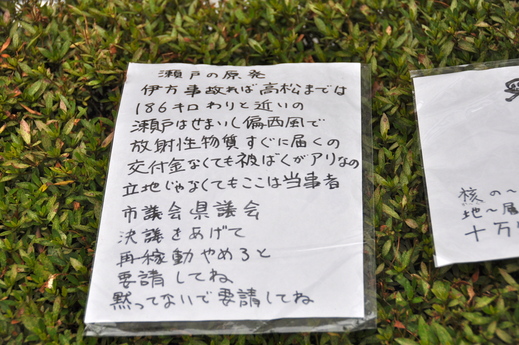 瀬戸の原発
伊方事故れば高松までは
186キロわりと近いの
瀬戸はせまいし偏西風で
放射性物質すぐに届くの
交付金なくても被ばくがアリなの
立地じゃなくてもここは当事者
市議会県議会
決議をあげて
再稼動やめろと
要請してね
黙ってないで要請してね
核の〜
地〜層
十万